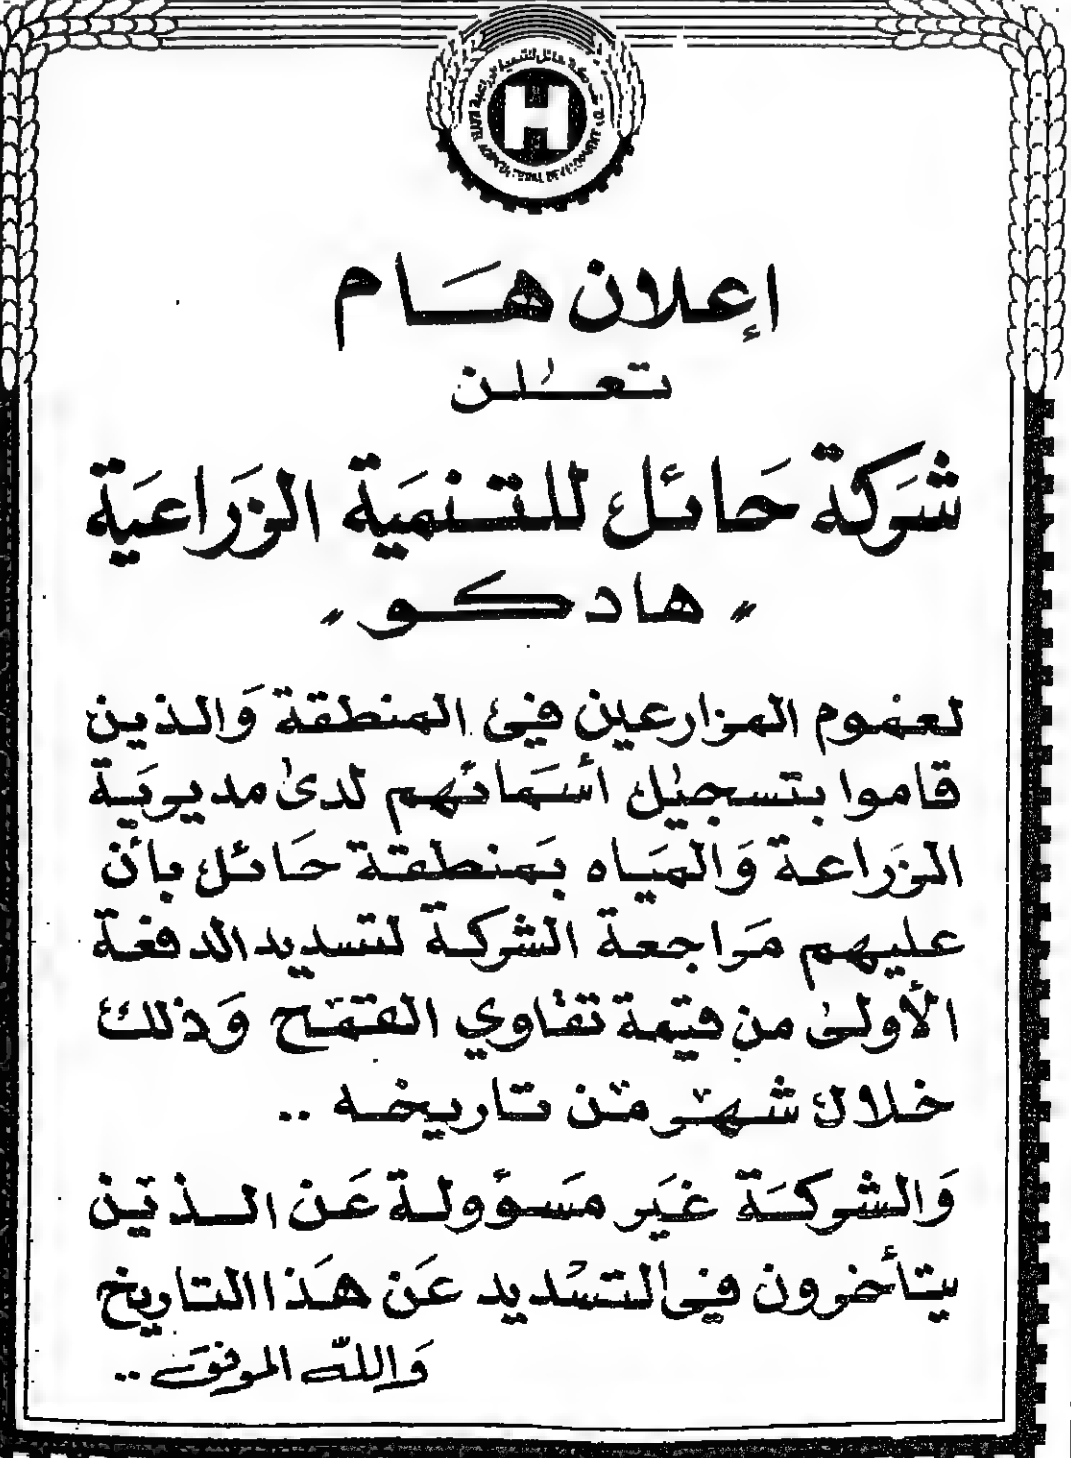 شركة حائل للتنمية الزراعية
HAIL AGRICULTURAL DEVELOPMENT CO.
H
إعلان هام
تعلن
شركة حائل للتنمية الزراعية
" هادكو "
لعموم المزارعين في المنطقة والذين
قاموا بتسجيل أسمائهم لدى مديرية
الزراعة والمياه بمنطقة حائل بأن
عليهم مراجعة الشركة لتسديد الدفعة
الأولى من قيمة تقاوي القمح وذلك
خلال شهر من تاريخه ..
والشركة غير مسؤولة عن الذين
يتأخرون في التسديد عن هذا التاريخ
والله الموفق ..